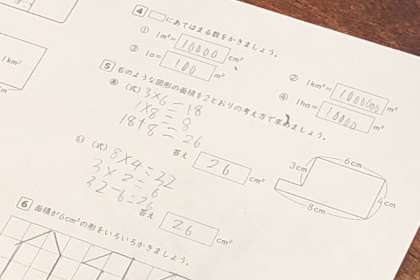 4 □にあてはまる数をかきましょう。
① 1m²= 10000 cm²
② 1km²= 1000000 m²
③ 1a= 100 m²
④ 1ha= 10000 m²
5 右のような図形の面積を2とおりの考え方で求めましょう。
あ (式) 3×6=18
1×8=8
18+8=26
答え 26 cm²
い (式) 8×4=32
3×2=6
32-6=26
答え 26 cm²
6cm
3cm
4cm
8cm
6 面積が6cm²の形をいろいろかきましょう。
1km²